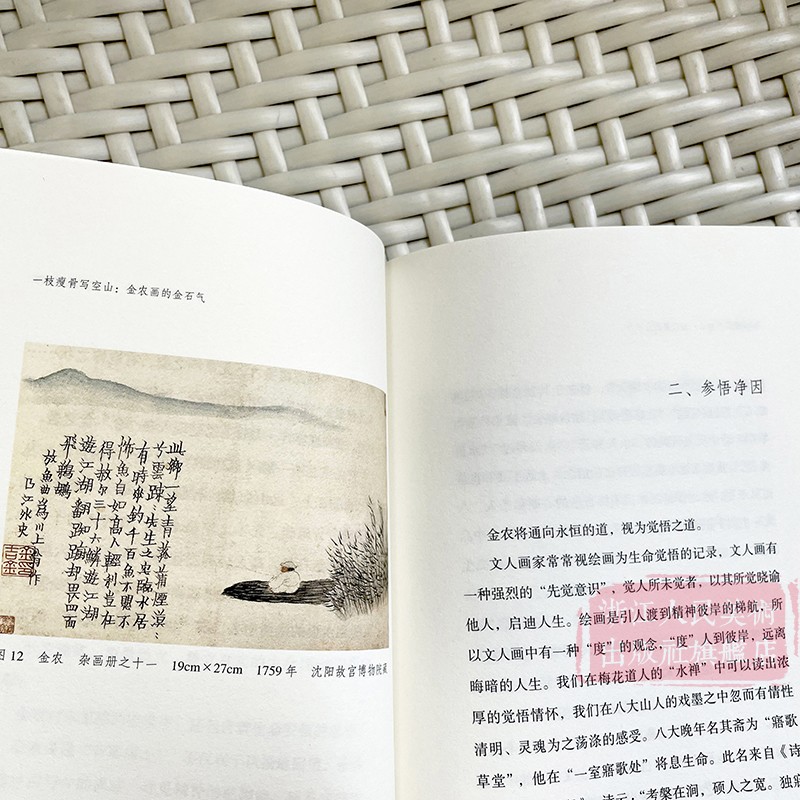 一枝瘦骨写空山：金农画的金石气
此鄉一望青菰蒲
有時舉釣千百魚不鬻不
怖魚自如高人輕利豈在
得赦尔三十六鱗遊江湖
遊江湖翻踟蹰却畏四面
飛鵜鶘
放魚曲爲川上翁作
江外史
图12 金农 杂画册之十一 19cm×27cm 1759年 沈阳故宫博物院藏
二、参悟净因
金农将通向永恒的道，视为觉悟之道。
文人画家常常视绘画为生命觉悟的记录，文人画有
一种强烈的“先觉意识”，觉人所未觉者，以其所觉晓谕
他人，启迪人生。绘画是引人渡到精神彼岸的梯航，所
以文人画中有一种“度”的观念，“度”人到彼岸，远离
晦暗的人生。我们在梅花道人的“水禅”中可以读出浓
厚的觉悟情怀，我们在八大山人的戏墨之中忽而有情性
清明、灵魂为之荡涤的感受。八大晚年名其斋为“寤歌
草堂”，他在“一室寤歌处”将息生命。此名来自《诗
诗云：“考槃在涧，硕人之宽。独寤
浙江人民美術
出版社旗艦店